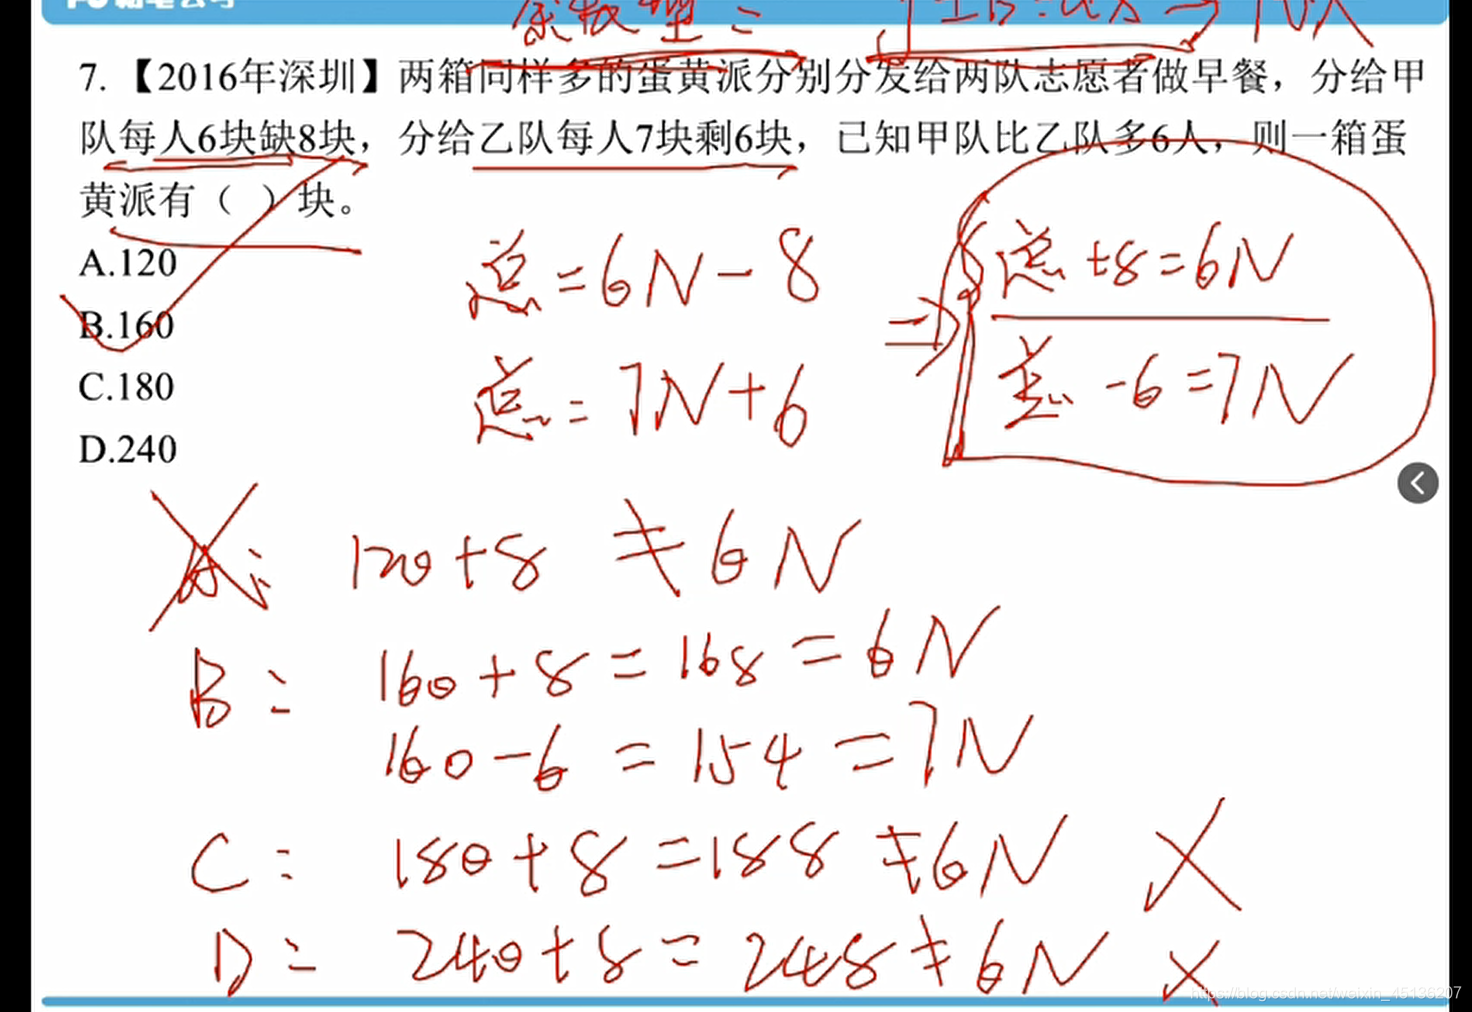 7.【2016年深圳】两箱同样多的蛋黄派分别分发给两队志愿者做早餐，分给甲
队每人6块缺8块，分给乙队每人7块剩6块，已知甲队比乙队多6人，则一箱蛋
黄派有（ ）块。
A.120
B.160
C.180
D.240
总=6N-8
总=7N+6
⇒
总+8=6N
总-6=7N
A: 120+8≠6N
B: 160+8=168=6N
160-6=154=7N
C: 180+8=188≠6N ×
D: 240+8=248≠6N ×
https://blog.csdn.net/weixin_45136207